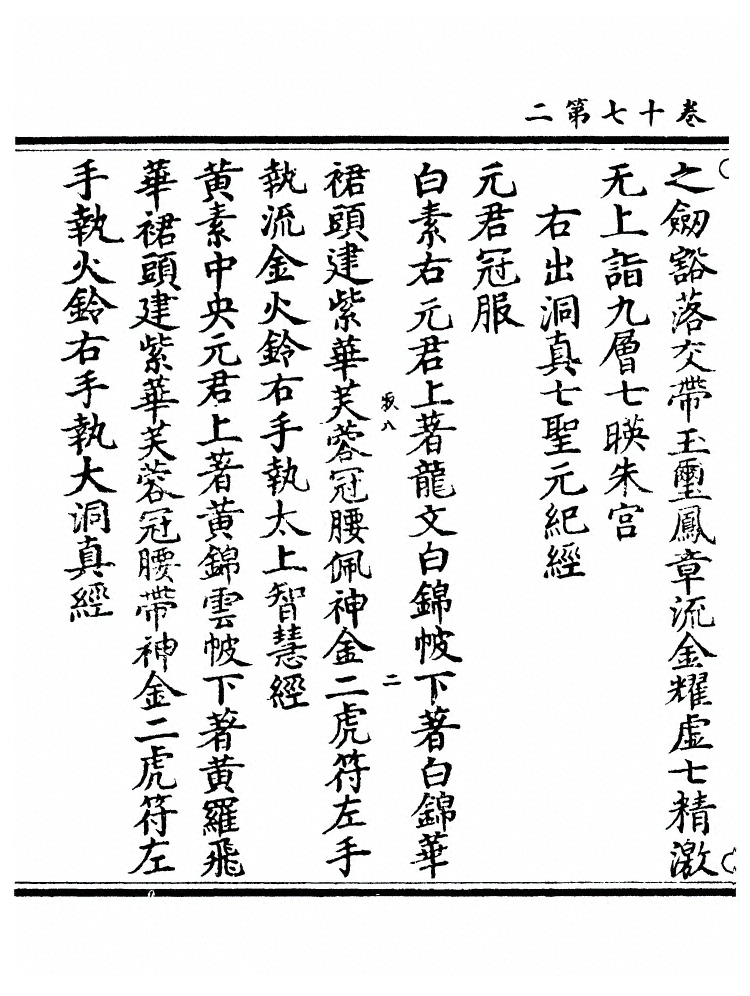 卷七十第二
之劒豁落交帶玉璽鳳章流金耀虛七精激
无上詣九層七暎朱宫
右出洞真七聖元紀經
元君冠服
白素右元君上著龍文白錦帔下著白錦華
裙頭建紫華芙蓉冠腰佩神金二虎符左手
執流金火鈴右手執太上智慧經
黃素中央元君上著黃錦雲帔下著黃羅飛
華裙頭建紫華芙蓉冠腰帶神金二虎符左
手執火鈴右手執大洞真經
八
二